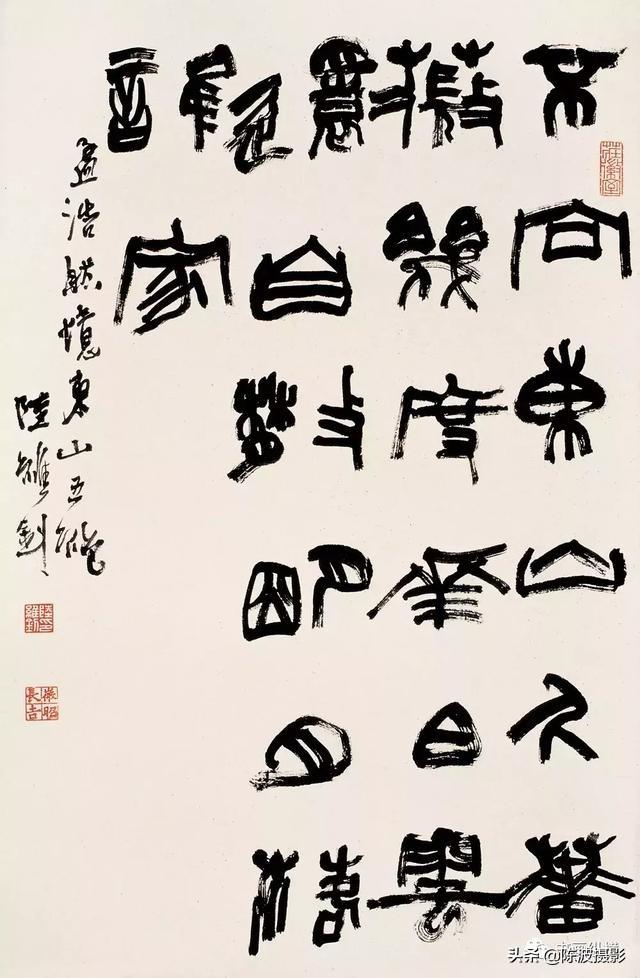 不向東山久薔
薇幾度華白雲
還自散明月落
誰家
孟浩然憶東山五絕
陸維釗
头条 @陈波摄影